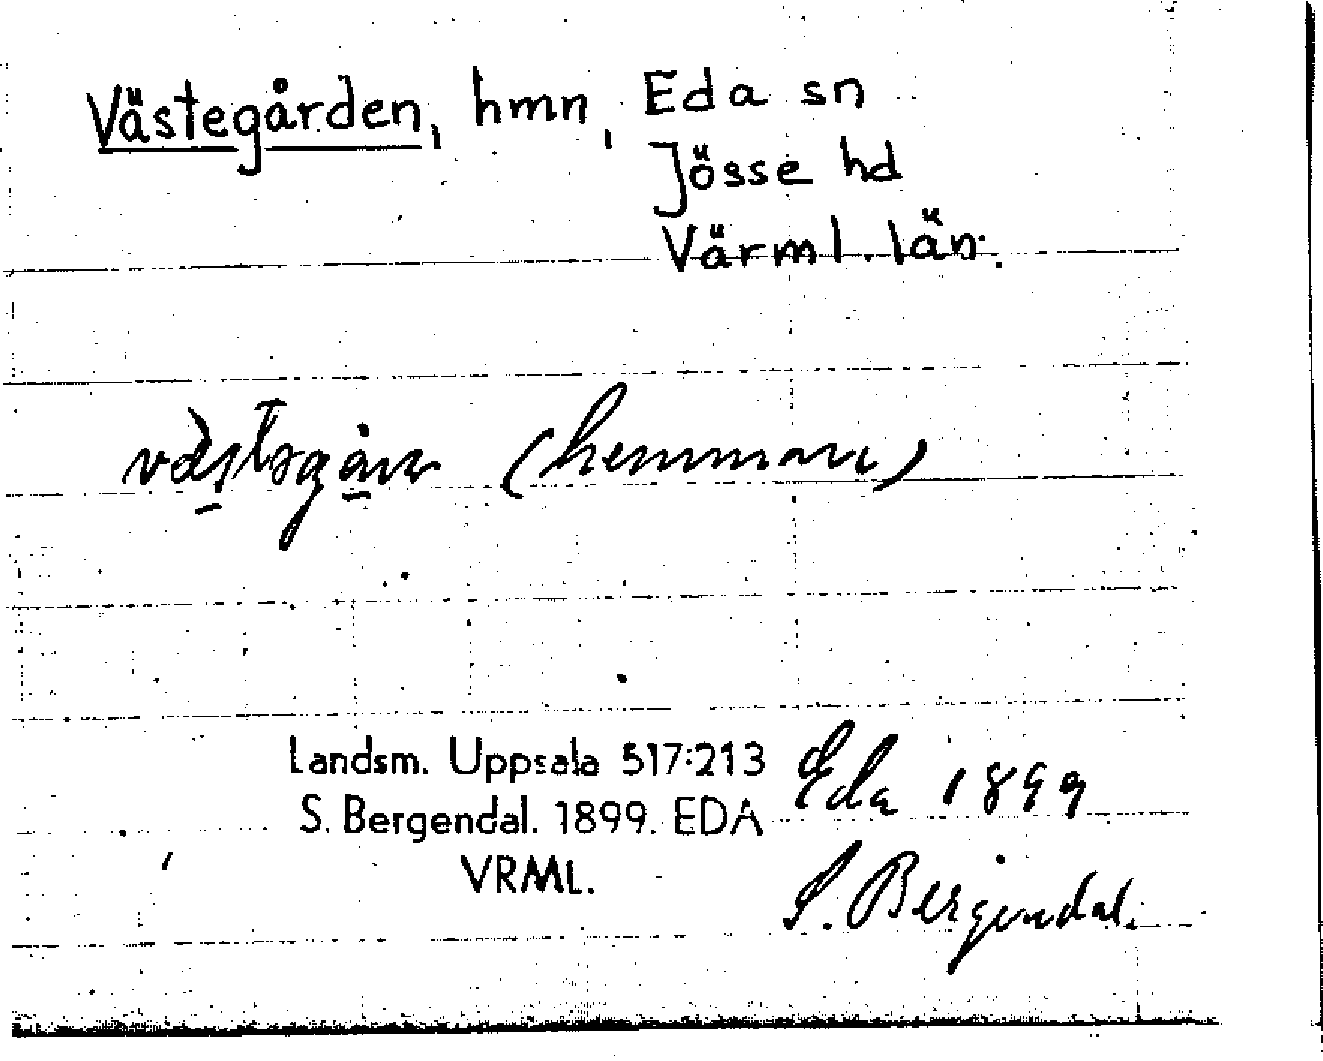 Västegården, hmn, Eda sn
Jösse hd
Värml. län.
(hemman)
Landsm. Uppsala 517:213
S. Bergendal. 1899. EDA
VRML.
Eda 1899
S. Bergendal.